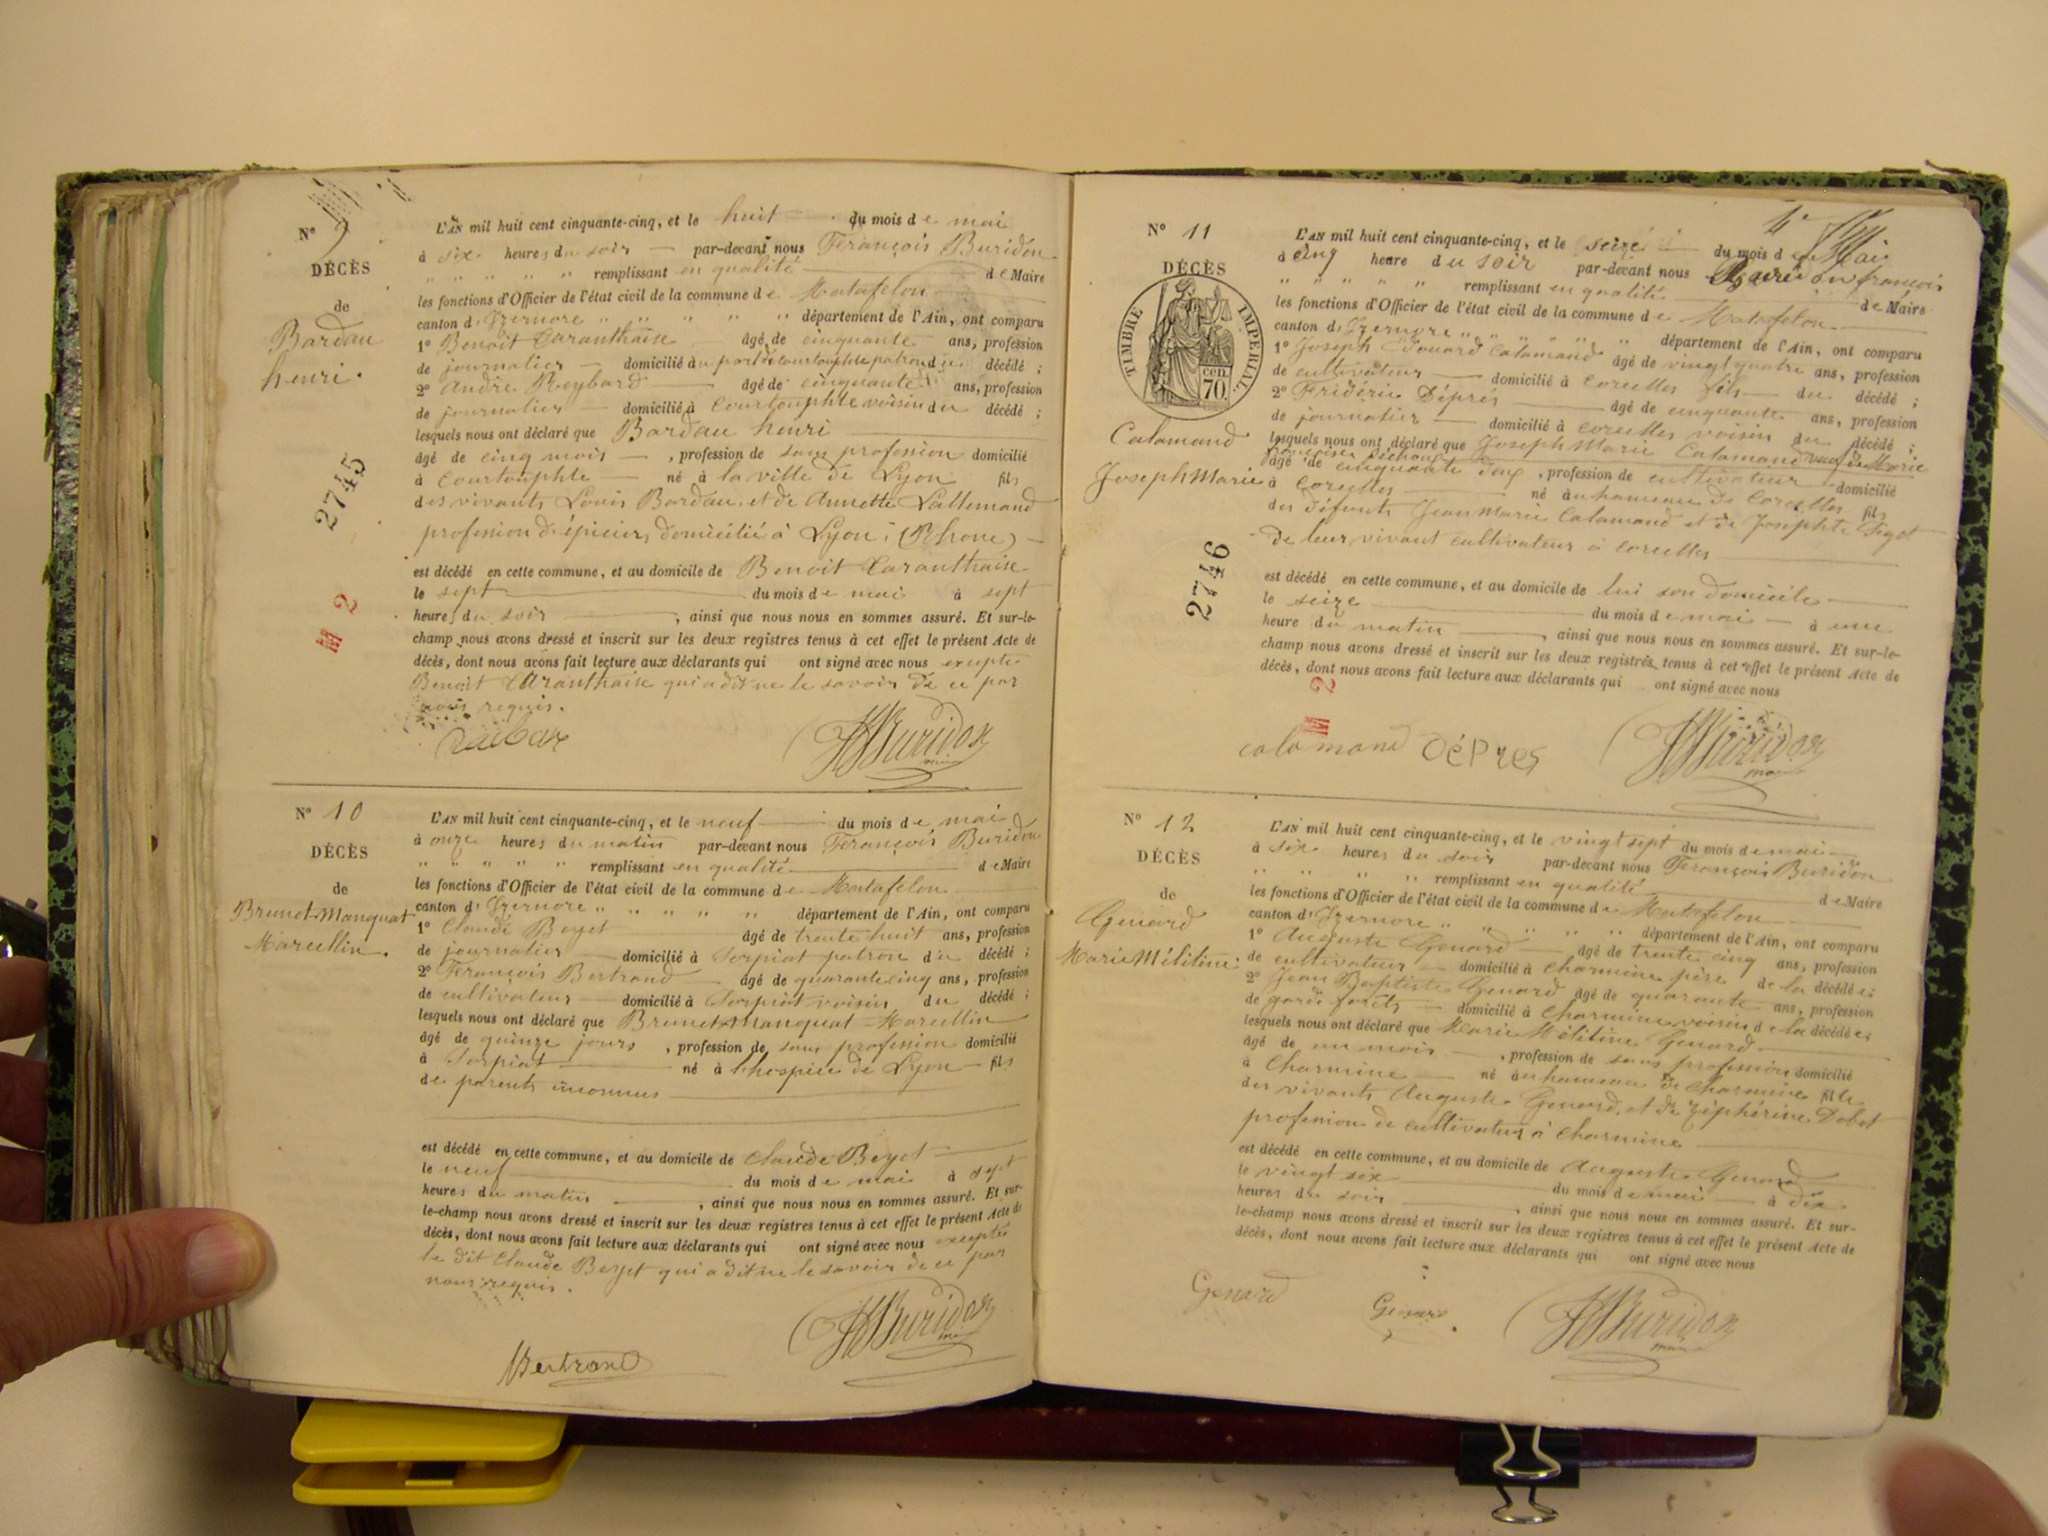 Nº 9
DÉCÈS
de
Bardau
henri.
2745
L'AN mil huit cent cinquante-cinq, et le huit du mois de mai
à six heures du soir par-devant nous François Buridon
" " " " " remplissant en qualité de Maire
les fonctions d'Officier de l'état civil de la commune de Matafelon
canton d'Izernore " " " " " département de l'Ain, ont comparu
1º Benoit Caranthaise âgé de cinquante ans, profession
de journalier domicilié au port de courtouphle patron du décédé ;
2º André Reybard âgé de cinquante ans, profession
de journalier domicilié à Courtouphle voisin du décédé ;
lesquels nous ont déclaré que Bardau henri
âgé de cinq mois , profession de sans profession domicilié
à Courtouphle né à la ville de Lyon fils
des vivants Louis Bardau et de Annette Lallemand
profession d'épiciers domicilié à Lyon (Rhone)
est décédé en cette commune, et au domicile de Benoit Caranthaise
le sept du mois de mai à sept
heures du soir , ainsi que nous nous en sommes assuré. Et sur-le-
champ nous avons dressé et inscrit sur les deux registres tenus à cet effet le présent Acte de
décès, dont nous avons fait lecture aux déclarants qui ont signé avec nous excepté
Benoit Caranthaise qui a dit ne le savoir de ce par
nous requis.
Buridon
maire
Nº 10
DÉCÈS
de
Brunet-Manquat
Marcellin.
L'AN mil huit cent cinquante-cinq, et le neuf du mois de mai
à onze heures du matin par-devant nous François Buridon
" " " " " remplissant en qualité de Maire
les fonctions d'Officier de l'état civil de la commune de Matafelon
canton d'Izernore " " " " " département de l'Ain, ont comparu
1º Claude Beyet âgé de trente huit ans, profession
de journalier domicilié à Sorpiat patron du décédé ;
2º François Bertrand âgé de quarante cinq ans, profession
de cultivateur domicilié à Sorpiat voisin du décédé ;
lesquels nous ont déclaré que Brunet-Manquat Marcellin
âgé de quinze jours , profession de sans profession domicilié
à Sorpiat né à l'hospice de Lyon fils
de parents inconnus
est décédé en cette commune, et au domicile de Claude Beyet
le neuf du mois de mai à sept
heures du matin , ainsi que nous nous en sommes assuré. Et sur-
le-champ nous avons dressé et inscrit sur les deux registres tenus à cet effet le présent Acte de
décès, dont nous avons fait lecture aux déclarants qui ont signé avec nous excepté
le dit Claude Beyet qui a dit ne le savoir de ce par
nous requis.
Bertrand
Buridon
maire
Nº 11
DÉCÈS
TIMBRE IMPERIAL
70 cen.
Calamand
Joseph Marie
2746
L'AN mil huit cent cinquante-cinq, et le seize du mois de Mai
à cinq heure du soir par-devant nous Buridon françois
" " " " " remplissant en qualité de Maire
les fonctions d'Officier de l'état civil de la commune de Matafelon
canton d'Izernore " " " " " département de l'Ain, ont comparu
1º Joseph Edouard Calamand âgé de vingt quatre ans, profession
de cultivateur domicilié à corcelles fils du décédé ;
2º Frédéric Déprés âgé de cinquante ans, profession
de journalier domicilié à corcelles voisin du décédé ;
lesquels nous ont déclaré que Joseph Marie Calamand veuf de Marie
françoise
âgé de cinquante deux , profession de cultivateur domicilié
à corcelles né au hameau de Corcelles fils
des défunts Jean Marie Calamand et de Josephte Figet
de leur vivant cultivateur à corcelles
est décédé en cette commune, et au domicile de lui son domicile
le seize du mois de mai à une
heure du matin , ainsi que nous nous en sommes assuré. Et sur-le-
champ nous avons dressé et inscrit sur les deux registres tenus à cet effet le présent Acte de
décès, dont nous avons fait lecture aux déclarants qui ont signé avec nous
calamand DéPres
Buridon
maire
Nº 12
DÉCÈS
de
Genard
Marie Mélitine.
L'AN mil huit cent cinquante-cinq, et le vingt sept du mois de mai
à six heures du soir par-devant nous François Buridon
" " " " remplissant en qualité de Maire
les fonctions d'Officier de l'état civil de la commune de Matafelon
canton d'Izernore " " " " " département de l'Ain, ont comparu
1º Auguste Genard âgé de trente cinq ans, profession
de cultivateur domicilié à Charmine père de la décédée;
2º Jean Baptiste Genard âgé de quarante ans, profession
de garde forêts domicilié à Charmine voisin de la décédée;
lesquels nous ont déclaré que Marie Mélitine Genard
âgé de un mois , profession de sans profession domicilié
à Charmine né au hameau de Charmine fille
des vivants Auguste Genard et de Zéphérine Dobet
profession de cultivateur à Charmine
est décédé en cette commune, et au domicile de Auguste Genard
le vingt six du mois de mai à dix
heures du soir , ainsi que nous nous en sommes assuré. Et sur-
le-champ nous avons dressé et inscrit sur les deux registres tenus à cet effet le présent Acte de
décès, dont nous avons fait lecture aux déclarants qui ont signé avec nous
Genard Genard
Buridon
maire